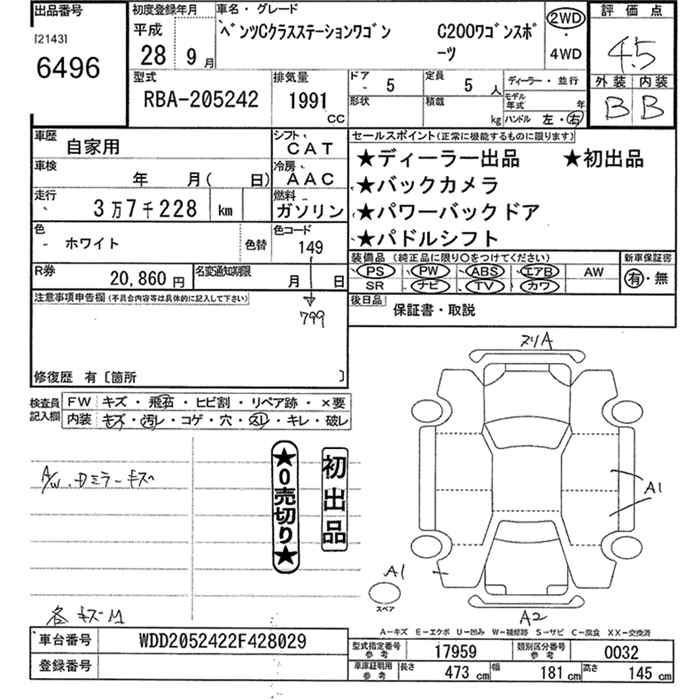 出品番号
[2143]
6496
初度登録年月
平成
28 9月
車名・グレード
ベンツCクラスステーションワゴン C200ワゴンスポーツ
2WD
・
4WD
評価点
4.5
外装 内装
B B
型式
RBA-205242
排気量
1991
CC
ドア
- 5
定員
5 人
ディーラー・並行
形状
積載
kg
モデル年式 年
ハンドル 左・右
車歴
自家用
シフト
CAT
車検
年 月( 日)
冷房
AAC
走行
3万7千228 km
燃料
ガソリン
色
- ホワイト
色替
色コード
149
799
R券
20,860円
名変通知期限
月 日
セールスポイント(正常に機能するものに限ります)
★ディーラー出品 ★初出品
★バックカメラ
★パワーバックドア
★パドルシフト
装備品 (純正品に限り○をつけてください)
PS PW ABS エアB AW
SR ナビ TV カワ
新車保証書
有・無
後日品
保証書・取説
注意事項申告欄(不具合内容等は具体的に記入して下さい)
修復歴 有〔箇所 〕
検査員記入欄
FW キズ・飛石・ヒビ割・リペア跡・×要
内装 キズ・汚レ・コゲ・穴・スレ・キレ・破レ
A/W.Dミラーキズ
★0売切り★
初出品
各キズM
スリA
A1
A1
スペア
A2
A-キズ E-エクボ U-凹み W-補修跡 S-サビ C-腐食 XX-交換済
車台番号
WDD2052422F428029
登録番号
型式指定番号 参考
17959
類別区分番号 参考
0032
車庫証明用 参考
長さ 473 cm
幅 181 cm
高さ 145 cm